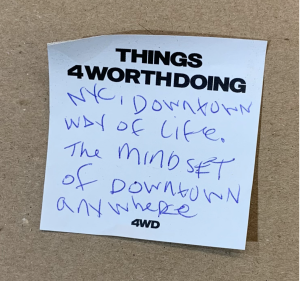 THINGS
4WORTHDOING
NYC, DOWNTOWN
WAY OF LIFE.
The MINDSET
OF DOWNTOWN
ANYWHERE
4WD